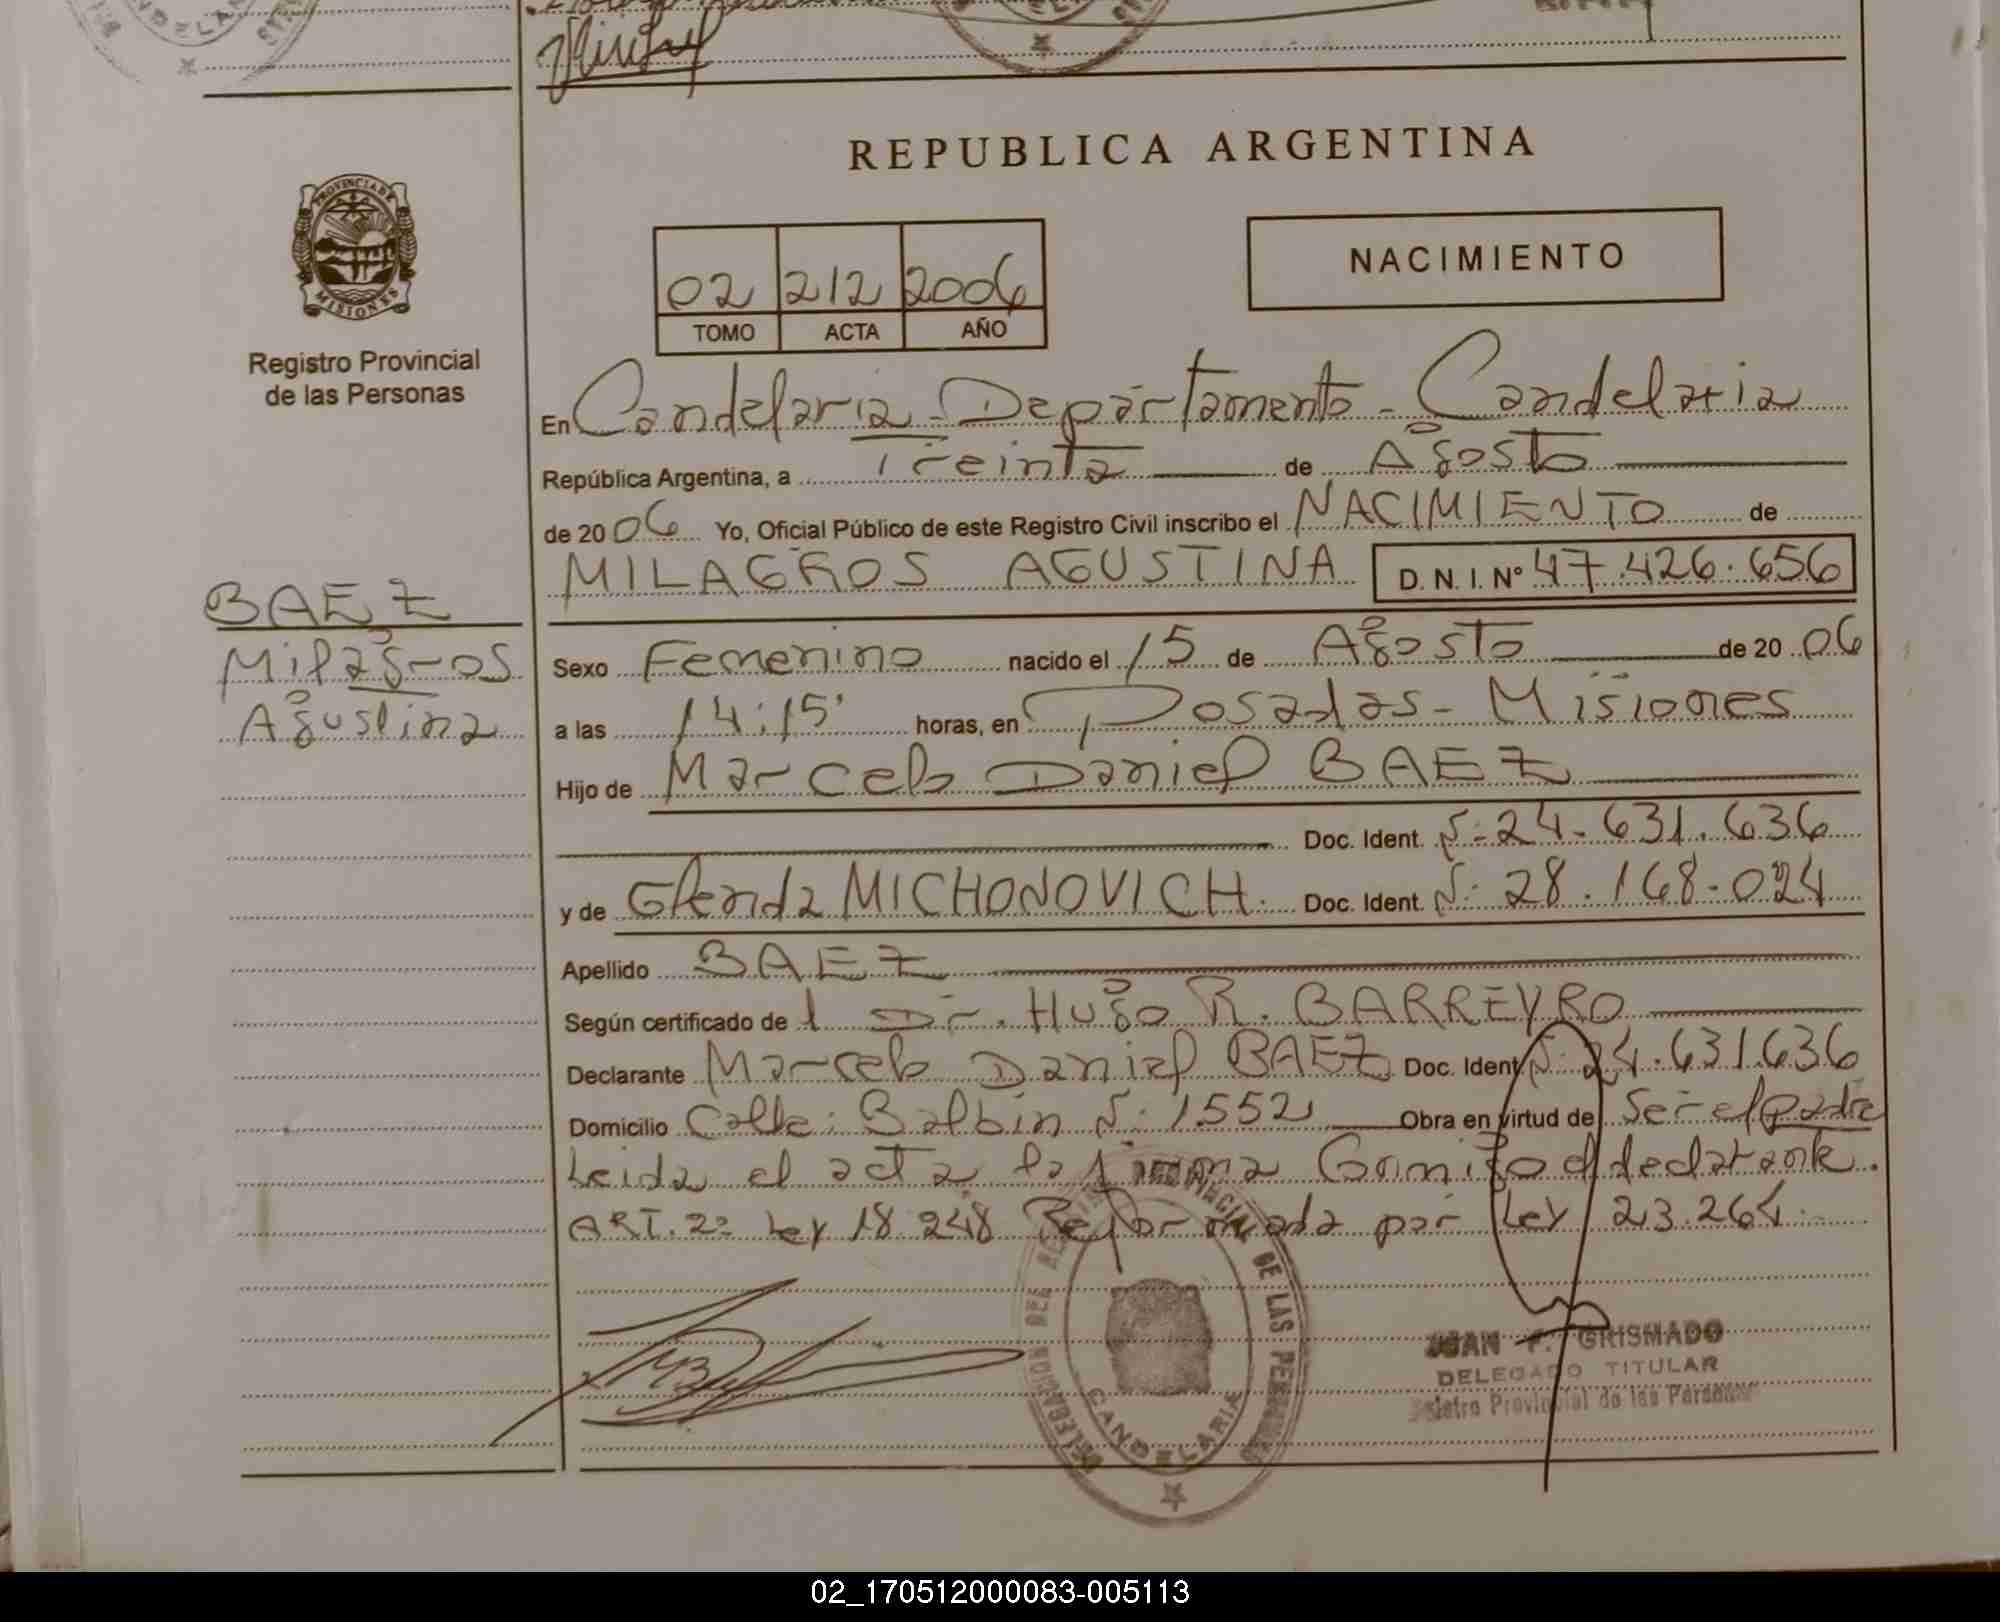 REPUBLICA ARGENTINA
PROVINCIA DE
MISIONES
Registro Provincial
de las Personas
02 212 2006
TOMO ACTA AÑO
NACIMIENTO
En Candelaria - Departamento - Candelaria
República Argentina, a Treinta de Agosto
de 2006 Yo, Oficial Público de este Registro Civil inscribo el NACIMIENTO de
MILAGROS AGUSTINA D.N.I. Nº 47.426.656
BAEZ
Milagros
Agustina
Sexo Femenino nacido el 15 de Agosto de 2006
a las 14:15' horas, en Posadas - Misiones
Hijo de Marcelo Daniel BAEZ
Doc. Ident. Nº 24.631.636
y de Glenda MICHONOVICH. Doc. Ident. Nº 28.168.024
Apellido BAEZ
Según certificado de l Dr. Hugo R. BARREYRO
Declarante Marcelo Daniel BAEZ Doc. Ident. Nº 24.631.636
Domicilio Calle: Balbin Nº 1552 Obra en virtud de Ser el padre
Leida el acta la firma Conmigo el declarante.
ART. 2º Ley 18.248 Reformada por Ley 23.264
DELEGACION DEL REGISTRO PROVINCIAL DE LAS PERSONAS
CANDELARIA
JUAN F. GRISMADO
DELEGADO TITULAR
Registro Provincial de las Personas
02_170512000083-005113